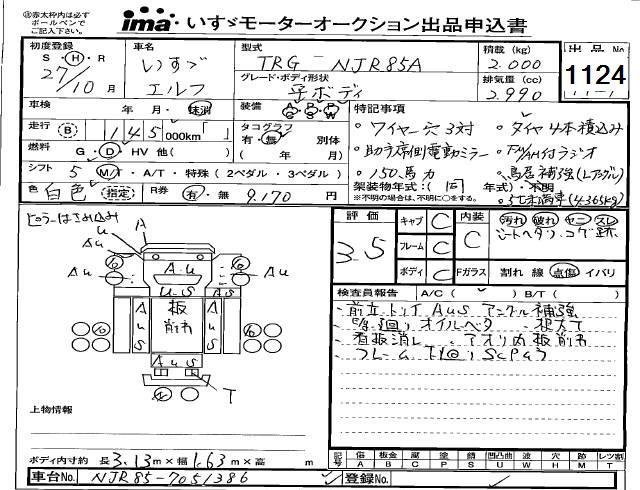 ㊟赤太枠内は必ず
ボールペンで
ご記入下さい。
ima いすゞモーターオークション出品申込書
初度登録 S・H・R 27/10月
車名 いすゞ エルフ
型式 TRG-NJR85A
グレード・ボディ形状 平ボディ
積載 (kg) 2.000
排気量 (cc) 2.990
出品No 1124
車検 年・月・抹消
装備 AC PS PW
走行 B 145 000km「 」
タコグラフ 有・無 別体
燃料 G・D・HV 他( )
シフト 5 M/T・A/T・特殊(2ペダル・3ペダル)
色 白色 指定 R券 有・無 9.170円
特記事項
・ワイヤー穴3対 ・タイヤ4本積込み
・助手席側電動ミラー ・FM/AM付ラジオ
・150馬力 ・鳥居補強(Lアングル)
架装物年式・( 同 年式)・不明
※不明の場合は、不明に○をする。
(4.365kg)
ピラーはさみこみ
A
u
Au
Au
Au
A・u
U・S
AuS
AuS
AuS
板
削れ
AuS
T
上物情報
ボディ内寸約 長3.13m×幅1.63m×高 m
車台No. NJR85-7051386
登録No.
評価 3.5
キャブ C
フレーム C
ボディ C
内装 C
汚れ 破れ セニ スレ
シートヘタリ、コゲ跡
Fガラス 割れ 線 点傷 イバリ
検査員報告 A/C( ) B/T( )
アングル補強
オイルベタ
・看板消し ・アオリ内板削れ
・フレーム下回りScPよう
記号 傷A 板金B 腐C 塗P 錆S 凹凸曲U 波W 穴H 跡M レツ割T